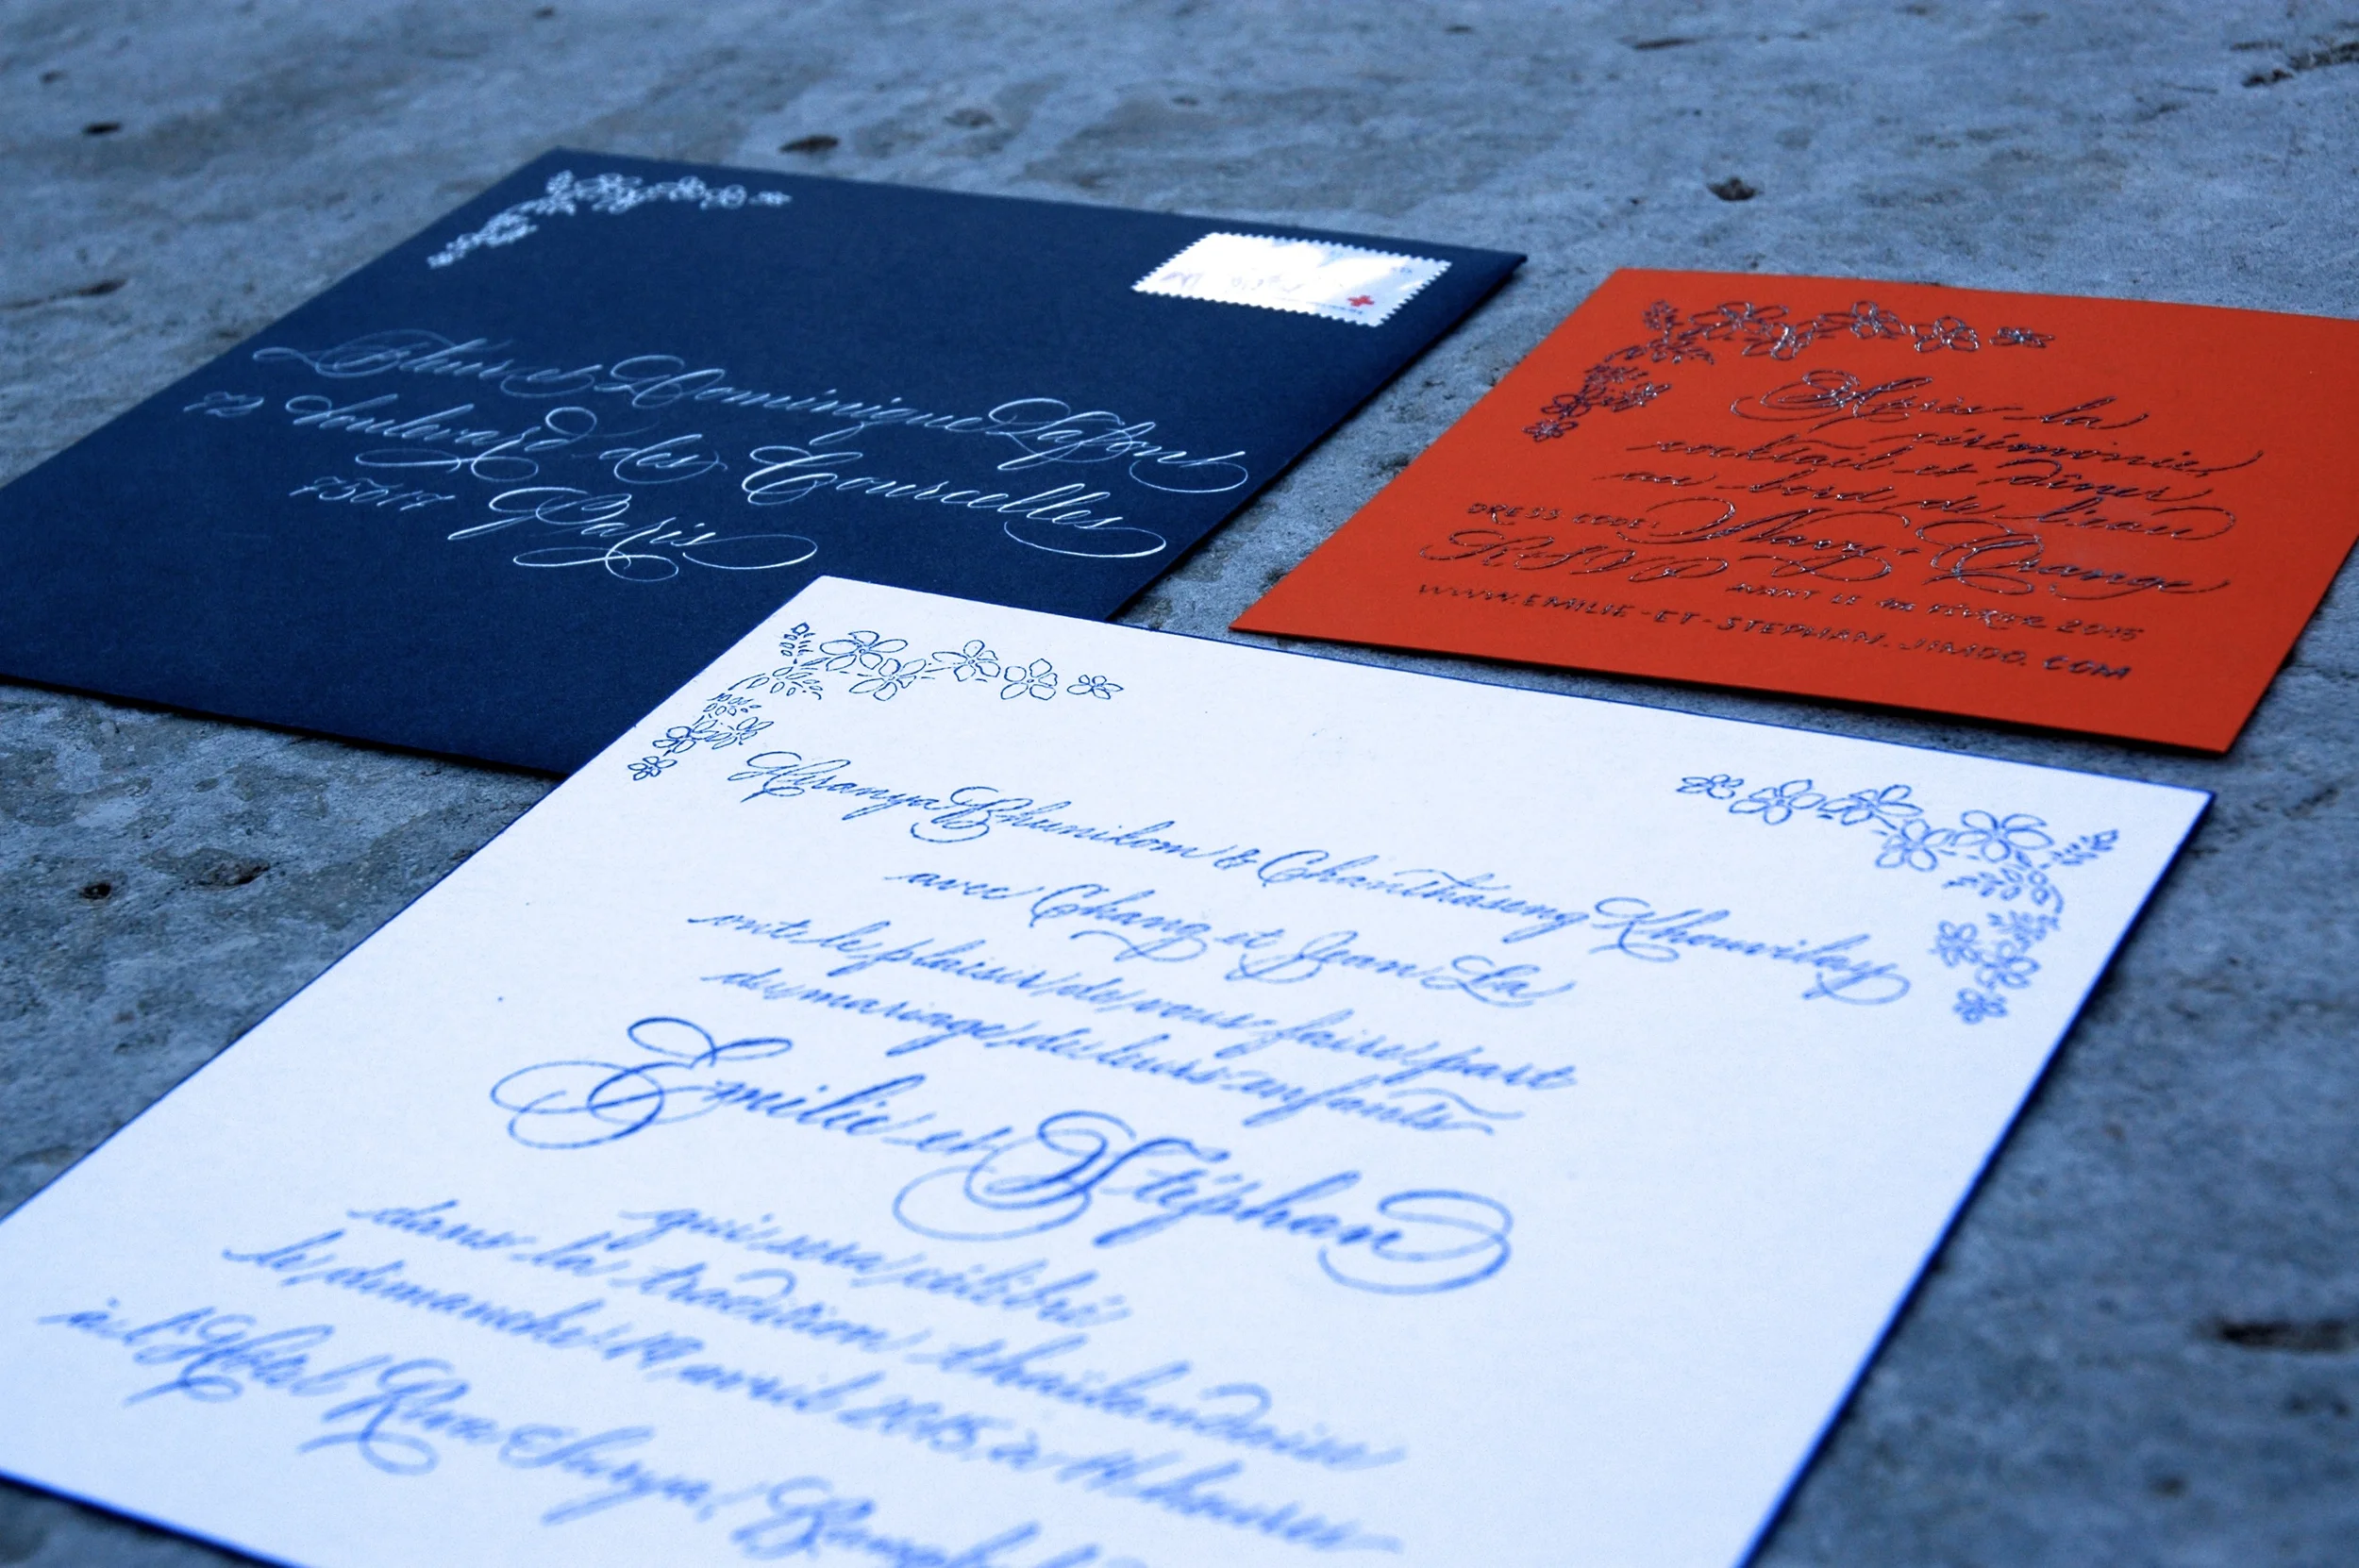 et Dominique Lafont
72 Boulevard des Courcelles
75017 Paris
Après la
cérémonie,
cocktail et dîner
au bord de l'eau
DRESS CODE: Navy & Orange
RSVP AVANT LE FÉVRIER 2015
WWW.EMILIE-ET-STEPHAN.JIMDO.COM
Phunikom & Chanthaseng Khouvilay
avec Chang et Jean La
ont le plaisir de vous faire part
du mariage de leurs enfants
Emilie et Stéphan
qui sera célébré
dans la tradition thaïlandaise
le dimanche 19 avril 2015, à heures
à l'Hôtel Riva Surya,